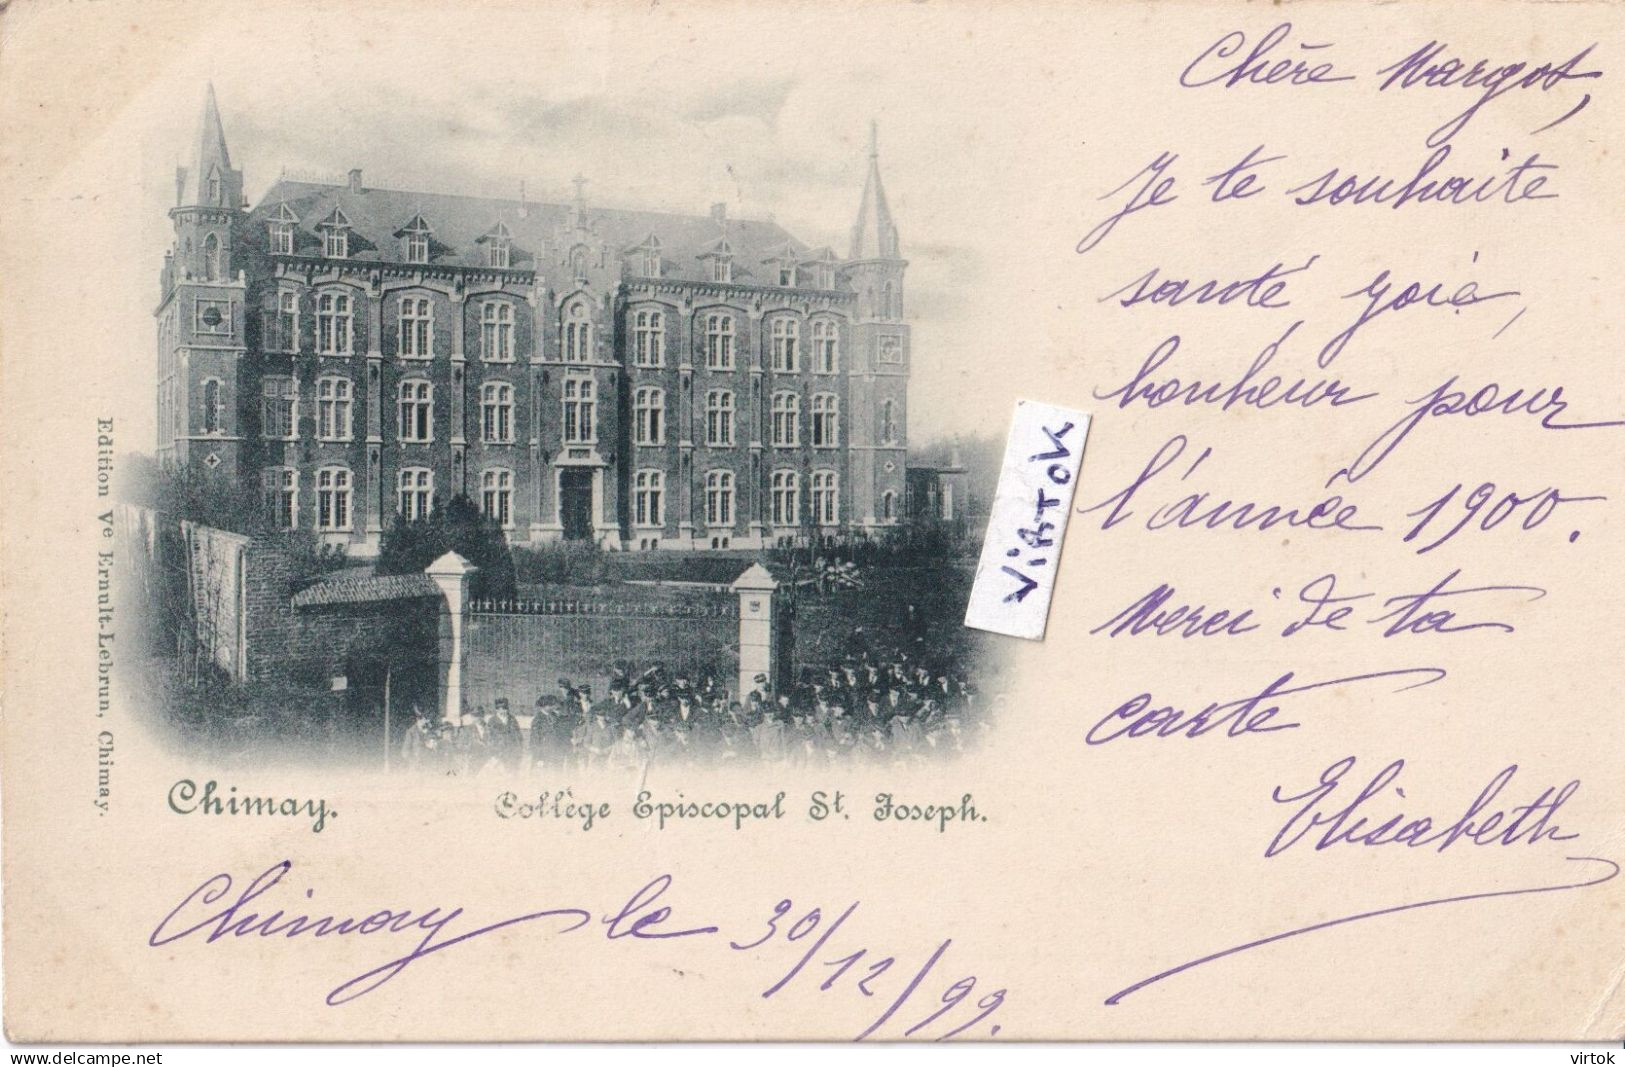 Chère Margot,
Je te souhaite
santé, joie,
bonheur pour
l'année 1900.
Merci de ta
carte
Elisabeth
VIRTOK
Edition Ve Ernult-Lebrun, Chimay.
Chimay.
Collège Episcopal St. Joseph.
Chimay le 30/12/99.
delcampe.net
virtok